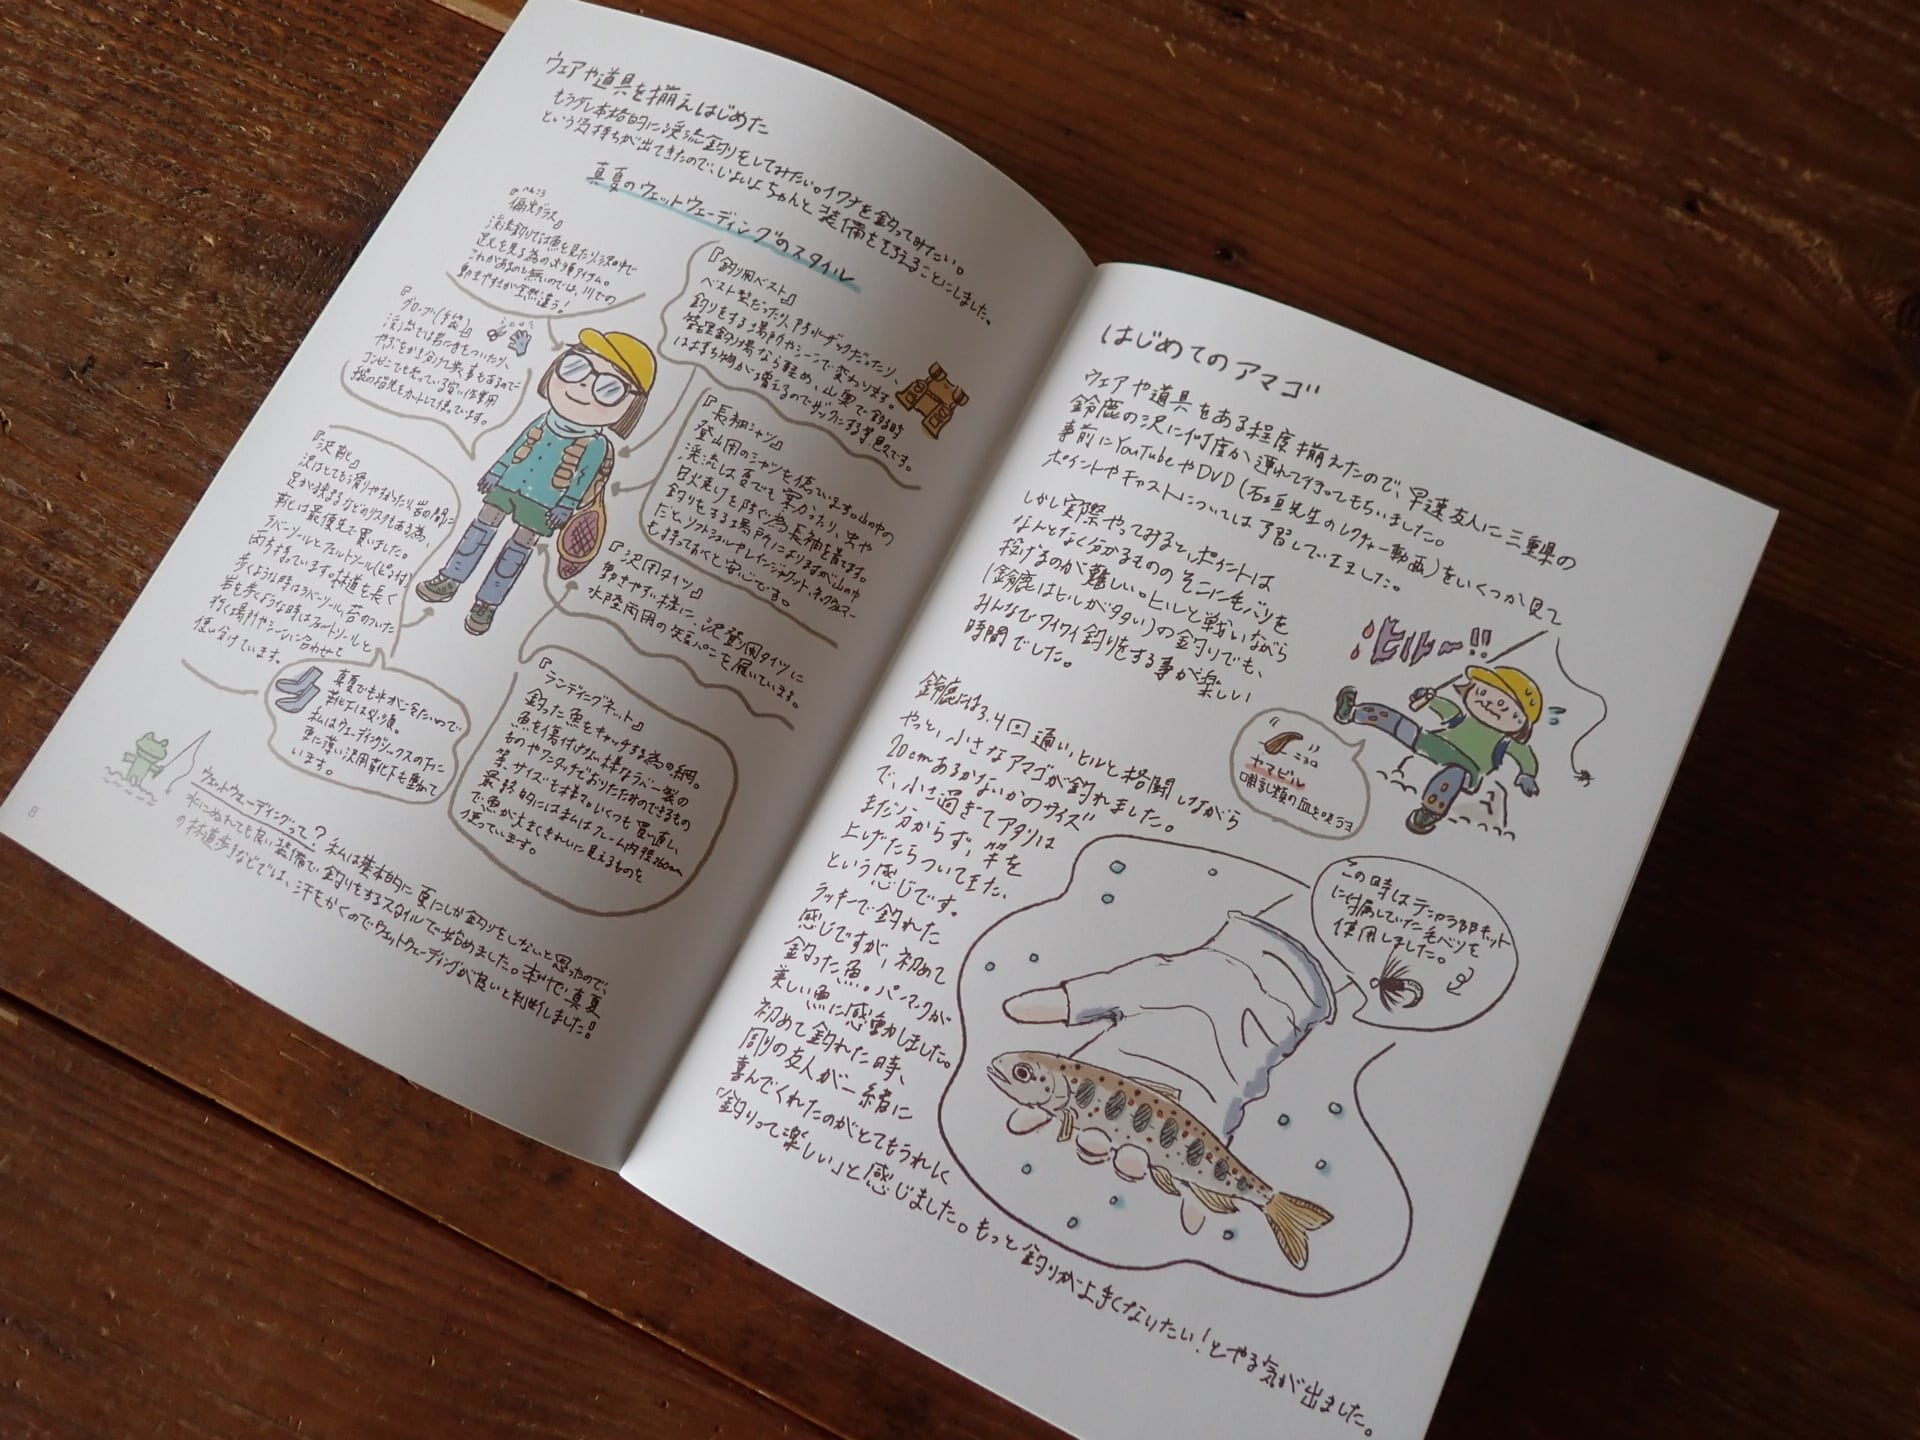 ウェアや道具を揃えはじめた
もう少し本格的に渓流釣りをしてみたい。イワナを釣ってみたい。
という気持ちが出てきたので、いよいよちゃんと装備をそろえることにしました。
真夏のウェットウェーディングのスタイル
へんこう
『偏光グラス』
渓流釣りでは魚を見たり、沢の中で
足元を見る為の必須アイテム。
これがあるのと無いのでは、川での
動きやすさが全然違う!
『グローブ(手袋)』
渓流では岩に手をついたり、
やぶをかき分けて歩く事もあるので
コンビニでも売っている安い作業用
手袋の指先をカットして使っています。
『沢靴』
沢はとても滑りやすかったり、岩の間に
足が挟まるなどのリスクもある為、
靴は最優先で買いました。
ラバーソールとフェルトソール(ピン付)
両方持っています。林道を長く
歩くような時はラバーソール、苔のついた
岩を歩くような時はフェルトソールと、
行く場所やシーンに合わせて
使い分けています。
真夏でも水がつめたいので
靴下は必須。
私はウェーディングソックスの下に
更に薄い沢用靴下も重ねて
います。
『釣り用ベスト』
ベスト型だったり、
釣りをする場所やシーンで変わります。
管理釣り場なら軽め、山奥で釣る時
は持ち物が増えるのでザックにする等色々です。
『長袖シャツ』
登山用のシャツを使っています。山の中の
渓流は夏でも寒かったり、虫や
日火焼けを防ぐ為長袖を着てます。
釣りをする場所によりますが山の中
だと、ソフトシェルやレインジャケット、ネックウォーマー
も持っておくと安心です。
『沢用タイツ』
動きやすい様に、沢登り用タイツに
水陸両用の短パンを履いています。
『ランディングネット』
釣った魚をキャッチする為の網。
魚を傷付けない様なラバー製の
ものやワンタッチでおりたためのできるもの
等、サイズも様々。いくつも買い直し、
最終的には私はフレーム内径260mm
で魚が大きくきれいに見えるものを
使っています。
ウェットウェーディングって? 私は基本的に夏にしか釣りをしないと思ったので、
水にぬれても良い装備で釣りをするスタイルで始めました。本州で真夏
の林道歩きなどでは、汗をかくのでウェットウェーディングが良いと判断しました!
8
はじめてのアマゴ
ウェアや道具をある程度揃えたので、早速友人に三重県の
鈴鹿の沢に何度か連れて行ってもらいました。
事前にYouTubeやDVD(石垣先生のレクチャー動画)をいくつか見て
ポイントやキャストについては予習していきました。
しかし実際やってみると、ポイントは
なんとなく分かるもののそこに毛バリを
投げるのが難しい。ヒルと戦いながら
(鈴鹿はヒルが多い)の釣りでも、
みんなでワイワイ釣りをする事が楽しい
時間でした。
ヒルー!!
ニョロ
ヤマビル
哺乳類の血を吸うヨ
鈴鹿には3.4回通い、ヒルと格闘しながら
やっと、小さなアマゴが釣れました。
20cmあるかないかのサイズ
で、小さ過ぎてアタリは
まだ分からず、竿を
上げたらついてきた、
という感じです。
ラッキーで釣れた
感じですが、初めて
釣った魚。パーマークが
美しい魚に感動しました。
初めて釣れた時、
周りの友人が一緒に
喜んでくれたのがとてもうれしく
「釣りって楽しい」と感じました。もっと釣りが上手くなりたい!とやる気が出ました。
この時はテンカラ部キット
に付属していた毛バリを
使用しました。